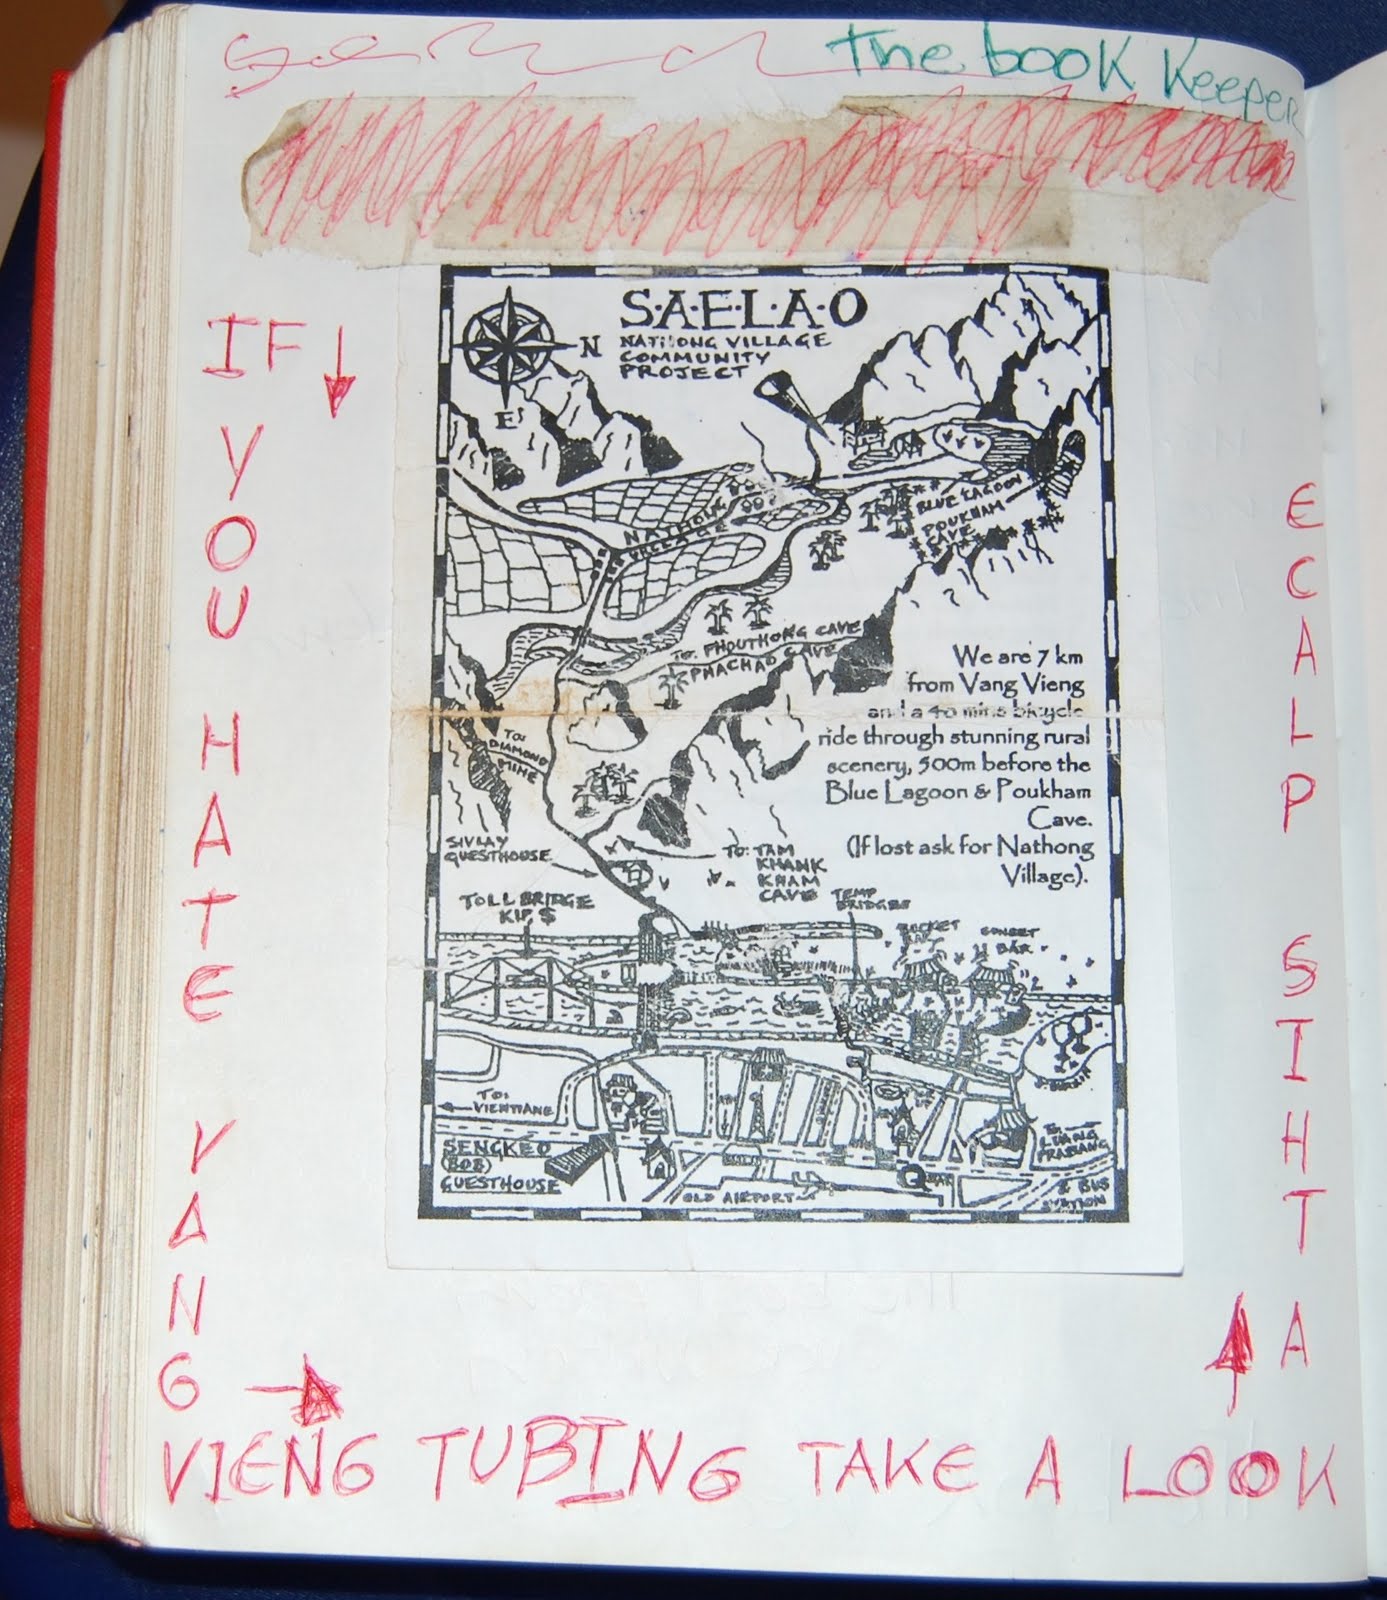 The book Keeper
IF
YOU
HATE
VANG
VIENG TUBING TAKE A LOOK
AT THIS
PLACE
S·A·E·L·A·O
NATHONG VILLAGE
COMMUNITY
PROJECT
N
E
NATHONG
VILLAGE
BLUE LAGOON
POUKHAM
CAVE
TO: PHOUTHONG CAVE
PHACHAO CAVE
We are 7 km
from Vang Vieng
and a 40 mins bicycle
ride through stunning rural
scenery, 500m before the
Blue Lagoon & Poukham
Cave.
(If lost ask for Nathong
Village).
TO:
DIAMOND
MINE
SIVLAY
GUESTHOUSE
TO: TAM
KHANK
KHAM
CAVE
TOLL BRIDGE
KIP, $
TEMP
BRIDGES
BUCKET
BAR
SUNSET
BAR
TO:
VIENTIANE
SENGKEO
(BOB)
GUESTHOUSE
OLD AIRPORT
TO
LUANG
PRABANG
& BUS
STATION